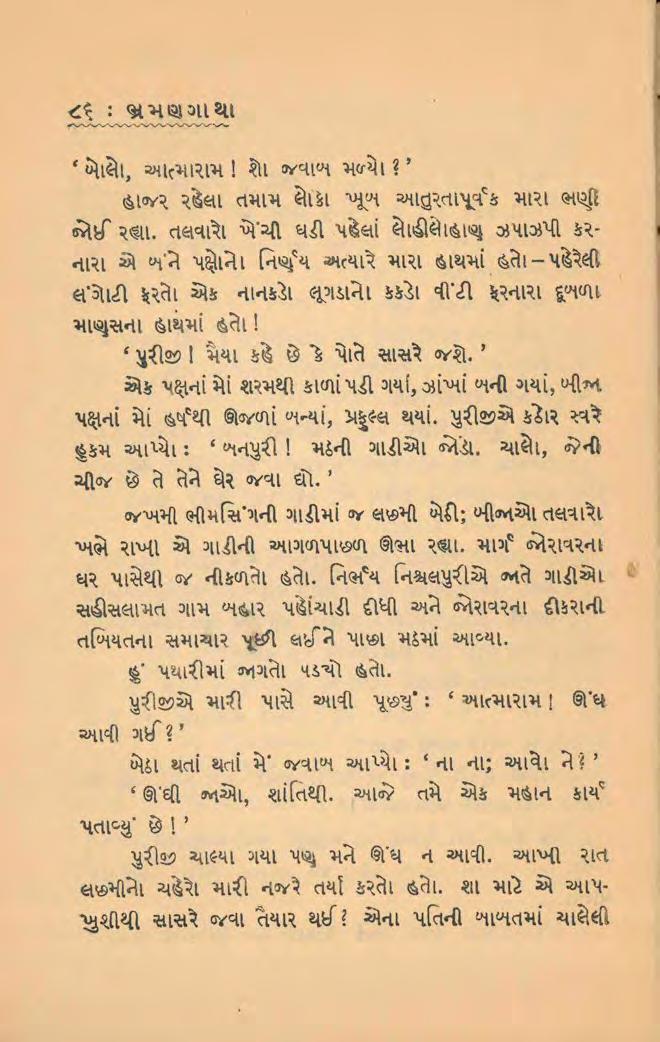 ૮૬ : ભ્રમણગાથા
‘ બોલો, આત્મારામ ! શો જવાબ મળ્યો ? ’
હાજર રહેલા તમામ લોકો ખૂબ આતુરતાપૂર્વક મારા ભણી
જોઈ રહ્યા. તલવારો ખેંચી ઘડી પહેલાં લોહીલોહાણ ઝપાઝપી કર-
નારા એ બંને પક્ષોનો નિર્ણય અત્યારે મારા હાથમાં હતો – પહેરેલી
લંગોટી ફરતો એક નાનકડો લૂગડાનો કકડો વીંટી ફરનારા દૂબળા
માણસના હાથમાં હતો !
‘ પુરીજી ! મૈયા કહે છે કે પોતે સાસરે જશે. ’
એક પક્ષનાં મોં શરમથી કાળાં પડી ગયાં, ઝાંખાં બની ગયાં, બીજા
પક્ષનાં મોં હર્ષથી ઊજળાં બન્યાં, પ્રફુલ્લ થયાં. પુરીજીએ કઠોર સ્વરે
હુકમ આપ્યો : ‘ બનપુરી ! મઠની ગાડીઓ જોડો. ચાલો, જેની
ચીજ છે તે તેને ઘેર જવા દ્યો. ’
જખમી ભીમસિંગની ગાડીમાં જ લછમી બેઠી; બીજાઓ તલવારો
ખભે રાખી એ ગાડીની આગળપાછળ ઊભા રહ્યા. માર્ગ જોરાવરના
ઘર પાસેથી જ નીકળતો હતો. નિર્ભય નિશ્ચલપુરીએ જાતે ગાડીઓ
સહીસલામત ગામ બહાર પહોંચાડી દીધી અને જોરાવરના દીકરાની
તબિયતના સમાચાર પૂછી લઈને પાછા મઠમાં આવ્યા.
હું પથારીમાં જાગતો પડ્યો હતો.
પુરીજીએ મારી પાસે આવી પૂછ્યું : ‘ આત્મારામ ! ઊંઘ
આવી ગઈ ? ’
બેઠા થતાં થતાં મેં જવાબ આપ્યો : ‘ ના ના; આવો ને ? ’
‘ ઊંઘી જાઓ, શાંતિથી. આજે તમે એક મહાન કાર્ય
પતાવ્યું છે ! ’
પુરીજી ચાલ્યા ગયા પણ મને ઊંઘ ન આવી. આખી રાત
લછમીનો ચહેરો મારી નજરે તર્યા કરતો હતો. શા માટે એ આપ-
ખુશીથી સાસરે જવા તૈયાર થઈ ? એના પતિની બાબતમાં ચાલેલી